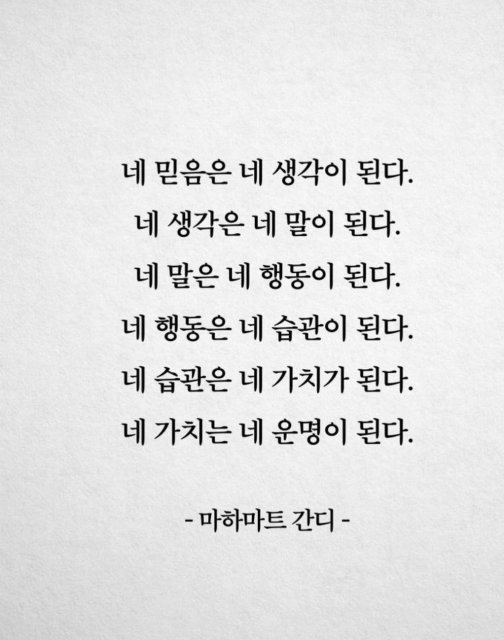 네 믿음은 네 생각이 된다.
네 생각은 네 말이 된다.
네 말은 네 행동이 된다.
네 행동은 네 습관이 된다.
네 습관은 네 가치가 된다.
네 가치는 네 운명이 된다.
- 마하마트 간디 -